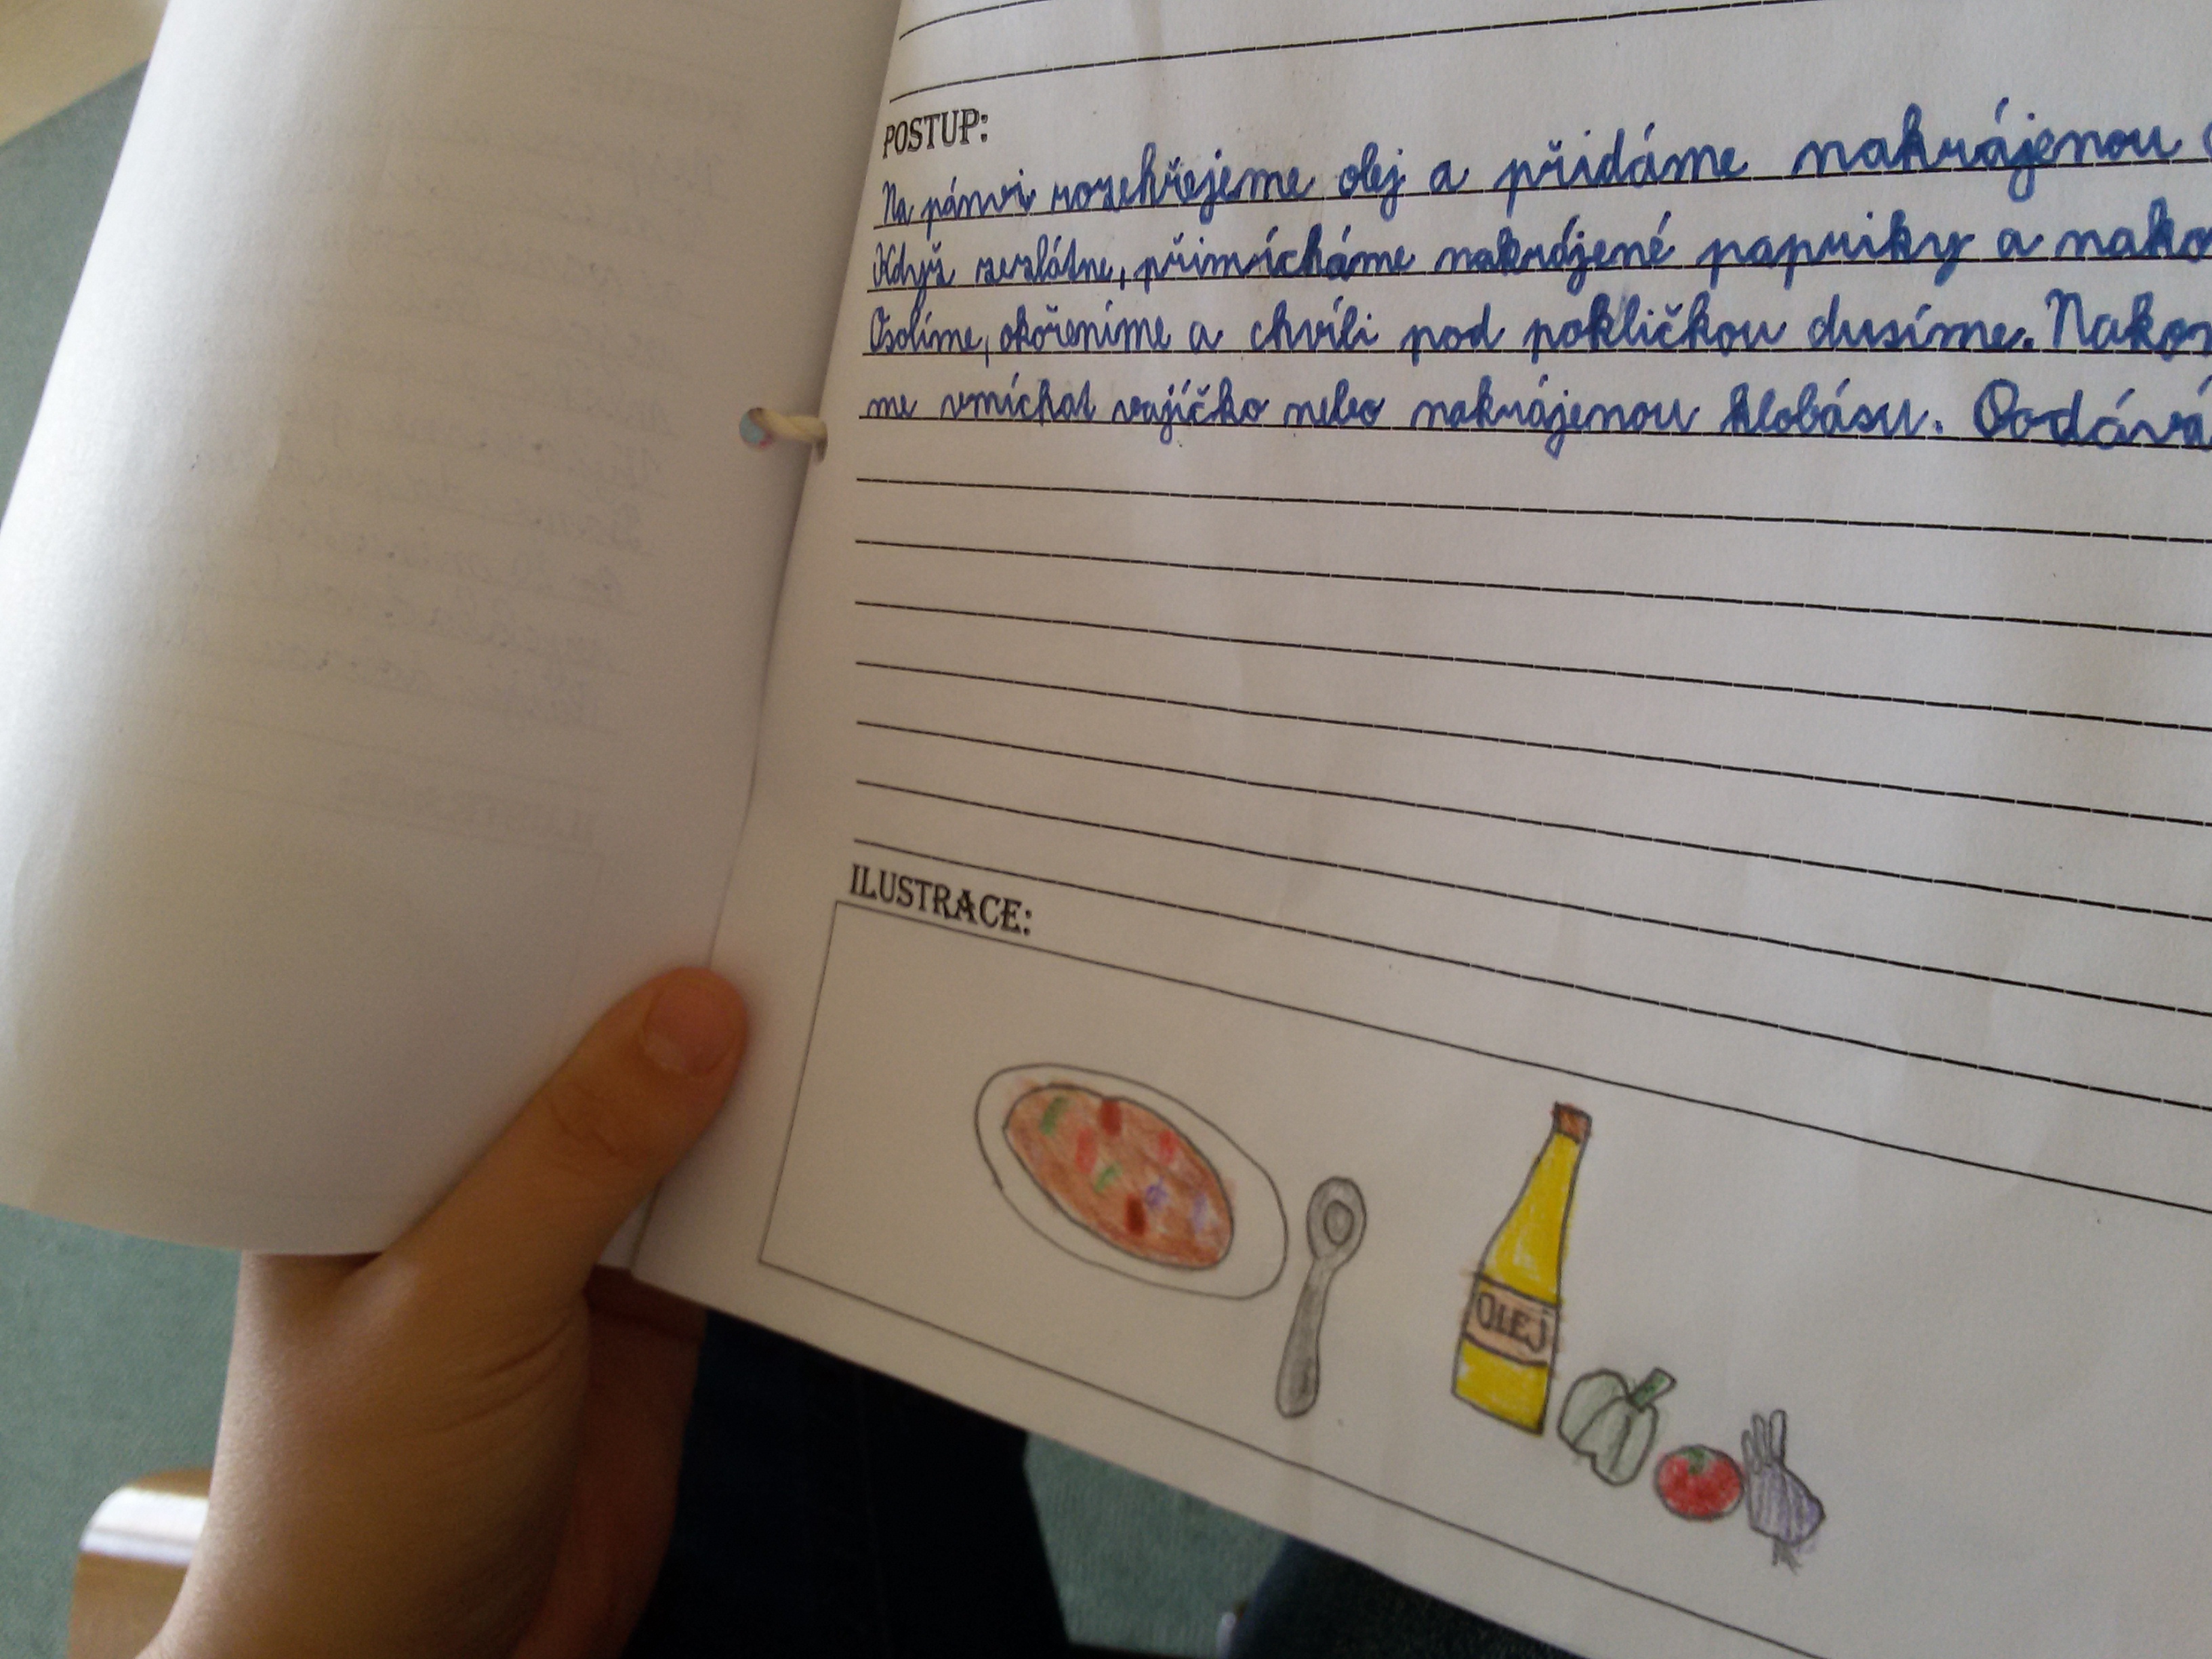 POSTUP:
Na pánvi rozehřejeme olej a přidáme nakrájenou
Když zezlátne, přimícháme nakrájené papriky a nako
Osolíme, okořeníme a chvíli pod pokličkou dusíme. Nakon
me vmíchat vajíčko nebo nakrájenou klobásu. Podává
ILUSTRACE:
OLEJ